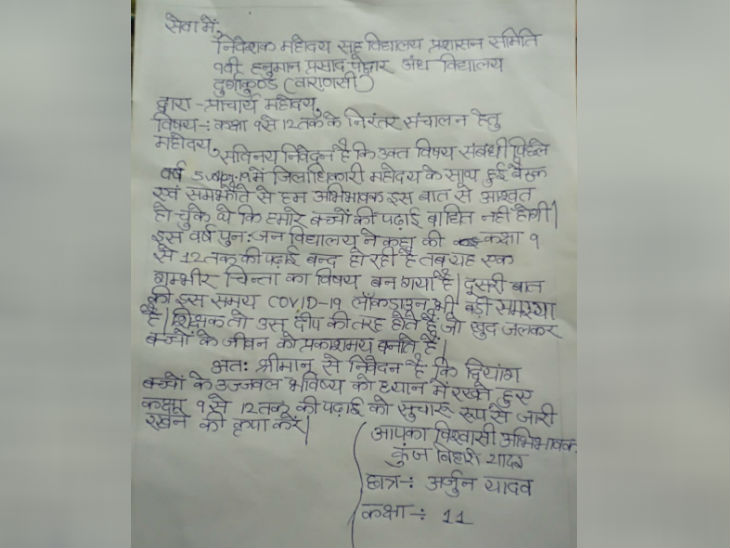 सेवा में,
निदेशक महोदय सह विद्यालय प्रशासन समिति
श्री हनुमान प्रसाद पोद्दार अंध विद्यालय
दुर्गाकुण्ड (वाराणसी)
द्वारा - प्राचार्य महोदय,
विषय -: कक्षा 9 से 12 तक के निरंतर संचालन हेतु
महोदय,
सविनय निवेदन है कि उक्त विषय संबंधी पिछले
वर्ष में जिलाधिकारी महोदय के साथ हुई बैठक
एवं समझौते से हम अभिभावक इस बात से आश्वत
हो चुके थे कि हमारे बच्चों की पढ़ाई बाधित नहीं होगी|
इस वर्ष पुन: जन विद्यालय ने कहा की कक्षा 9
से 12 तक की पढ़ाई बन्द हो रही है तब यह एक
गम्भीर चिन्ता का विषय बन गया है| दूसरी बात
की इस समय COVID-19 लॉकडाउन भी बड़ी समस्या
है| शिक्षक तो उस दीप की तरह होते हैं जो खुद जलकर
बच्चों के जीवन को प्रकाशमय बनाते हैं|
अत: श्रीमान से निवेदन है कि दिव्यांग
बच्चों के उज्जवल भविष्य को ध्यान में रखते हुए
कक्षा 9 से 12 तक की पढ़ाई को सुचारू रूप से जारी
रखने की कृपा करें|
आपका विश्वासी अभिभावक
कुंज बिहारी यादव
छात्र -: अर्जुन यादव
कक्षा -: 11